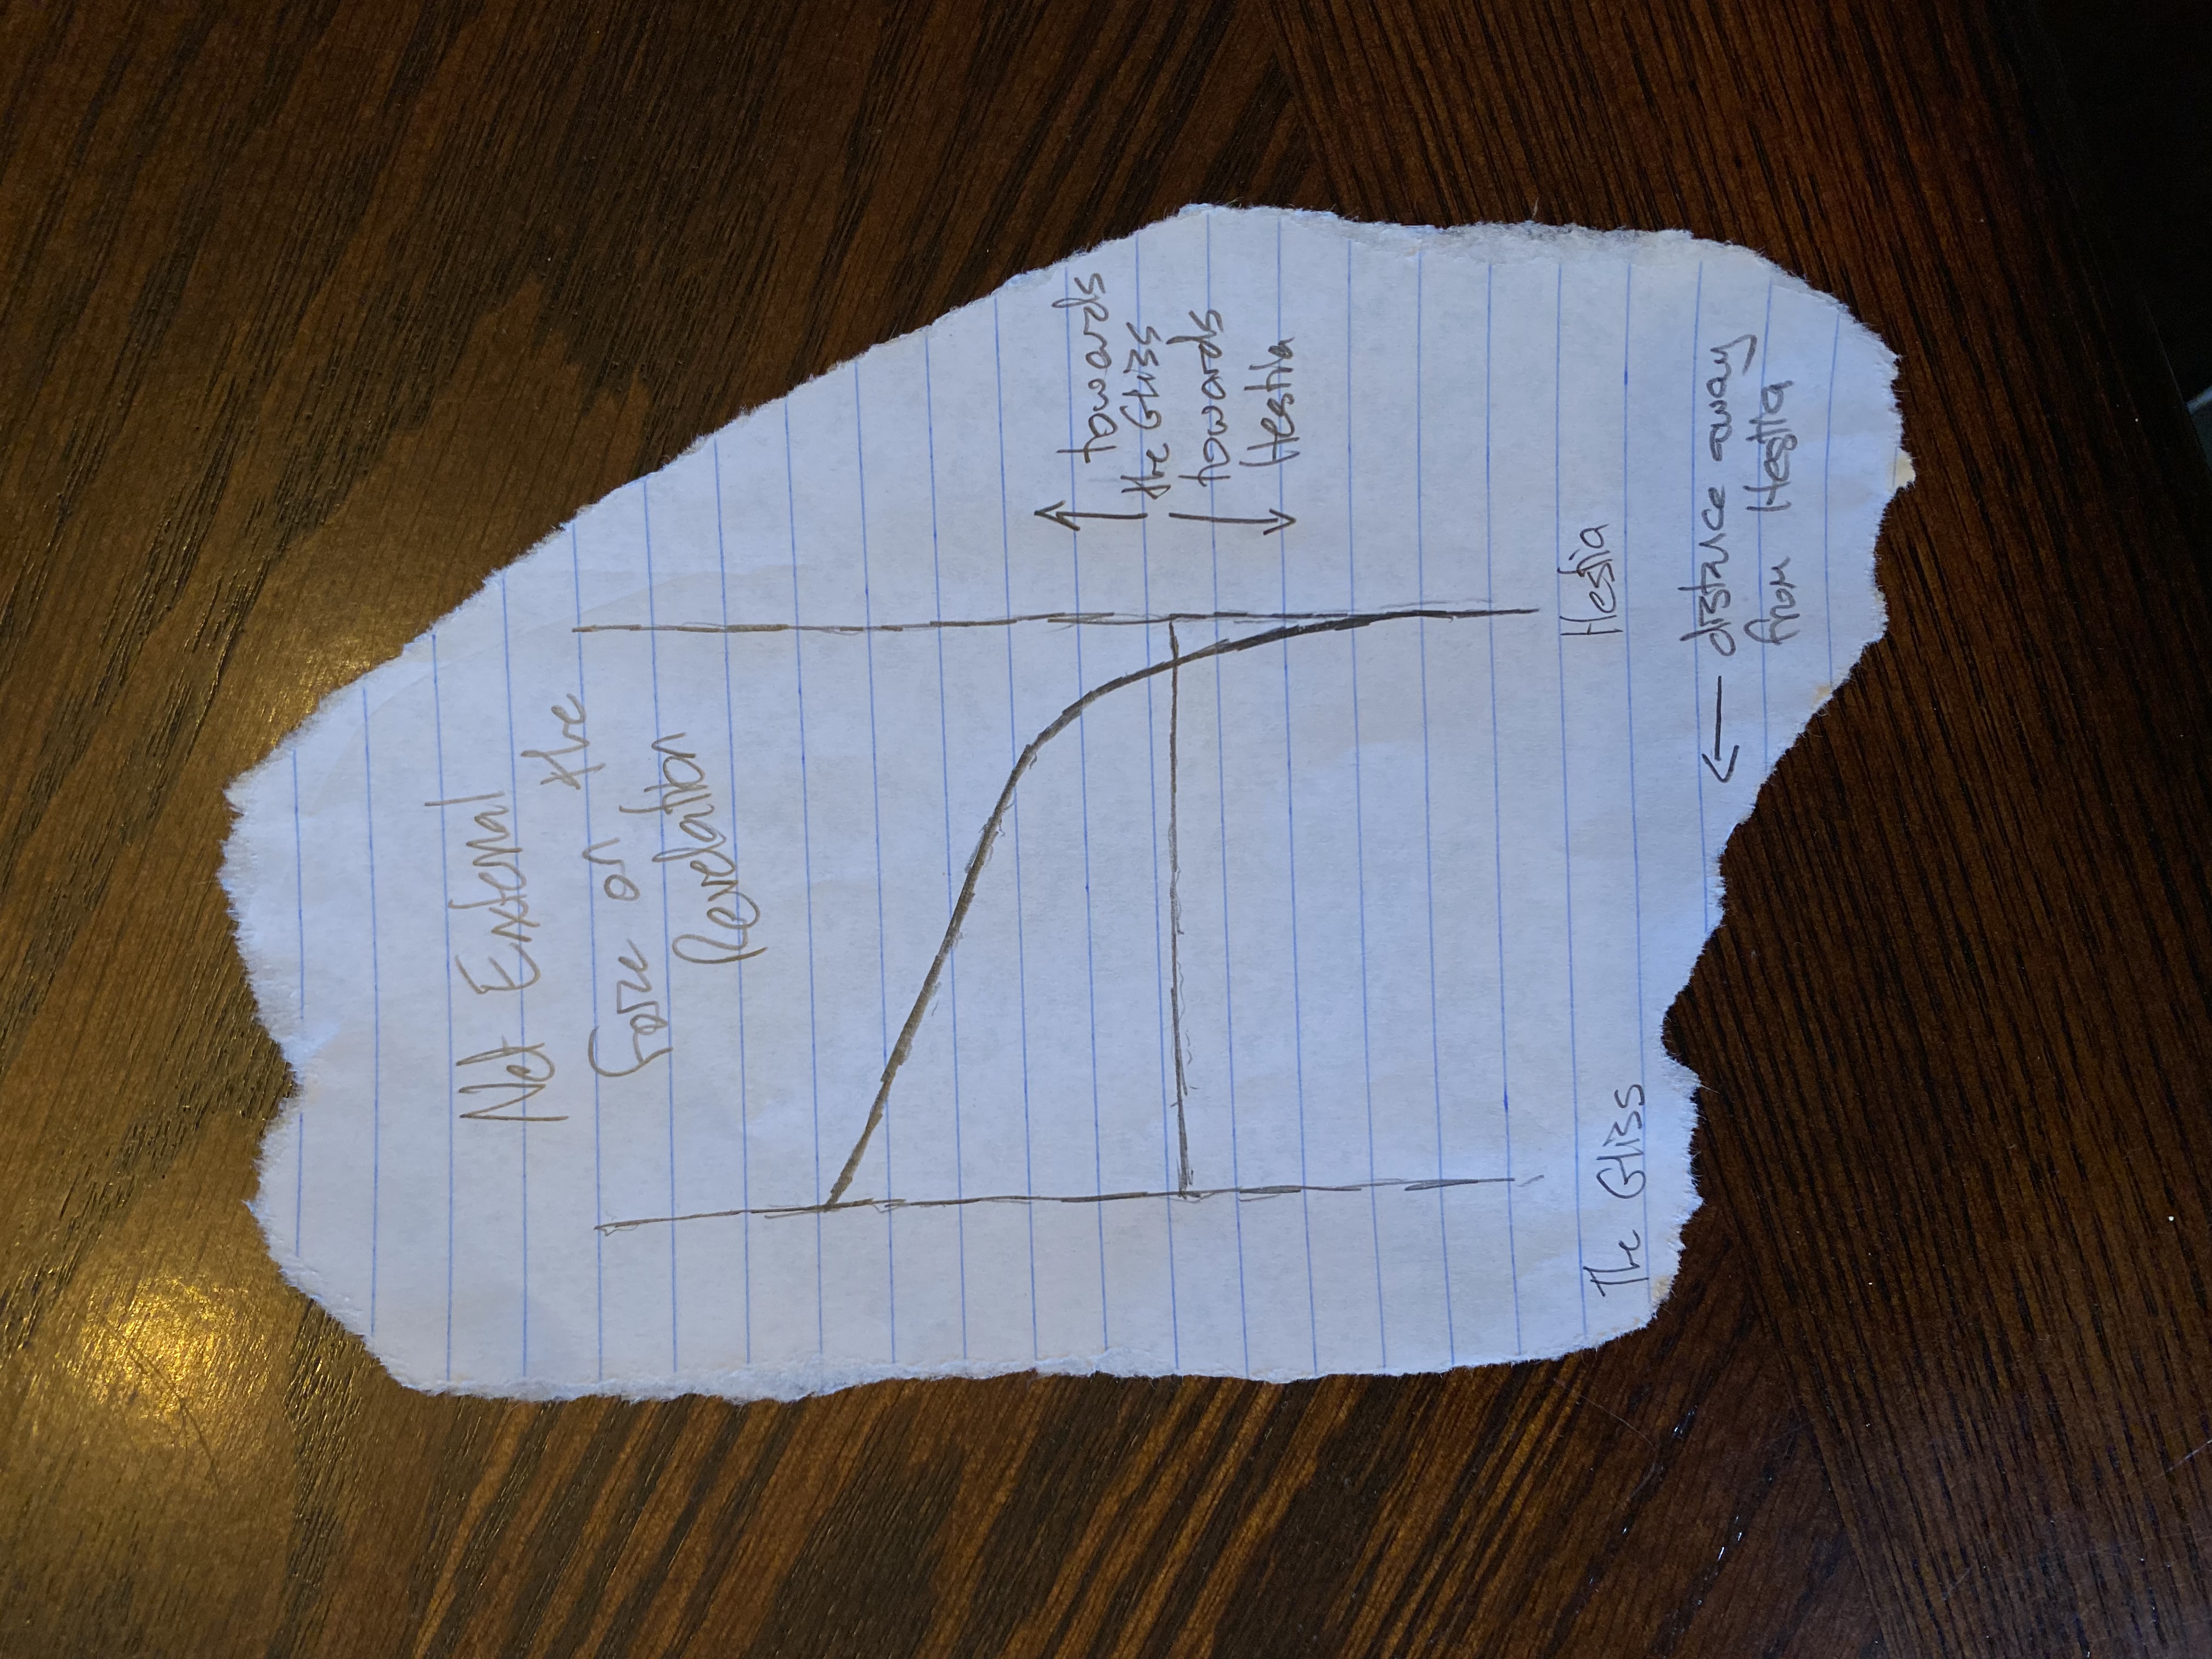 Net External
Force on the
Revelation
towards
the Gliss
towards
Hestia
The Gliss
Hestia
distance away
from Hestia